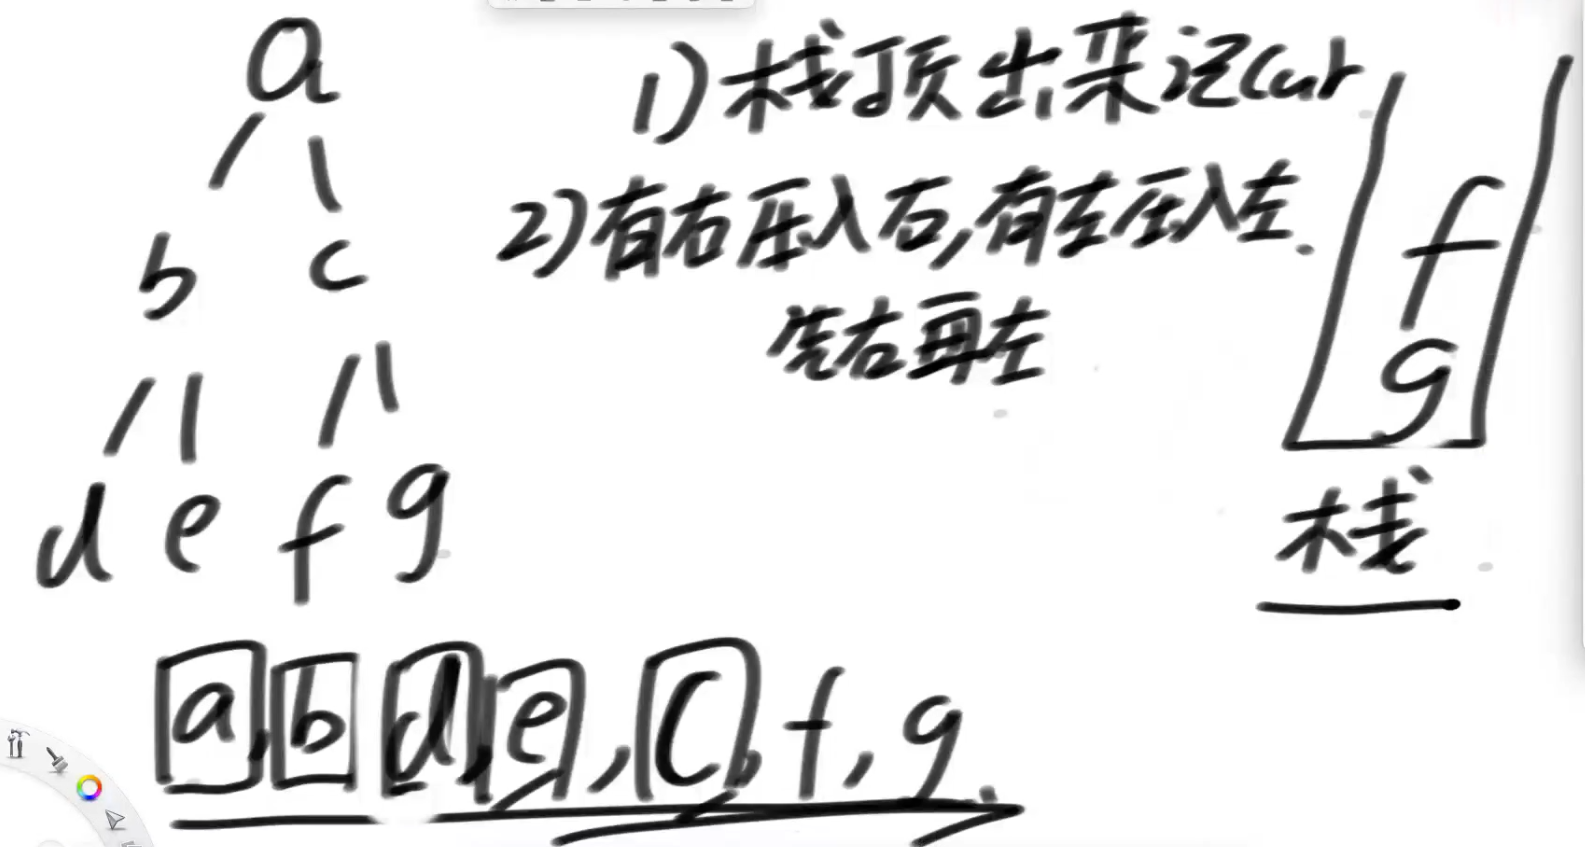 a
b c
d e f g
1)栈顶出来记cur
2)有右压入右,有左压入左.
先右再左
f
g
栈
a,b d,e,c,f,g.